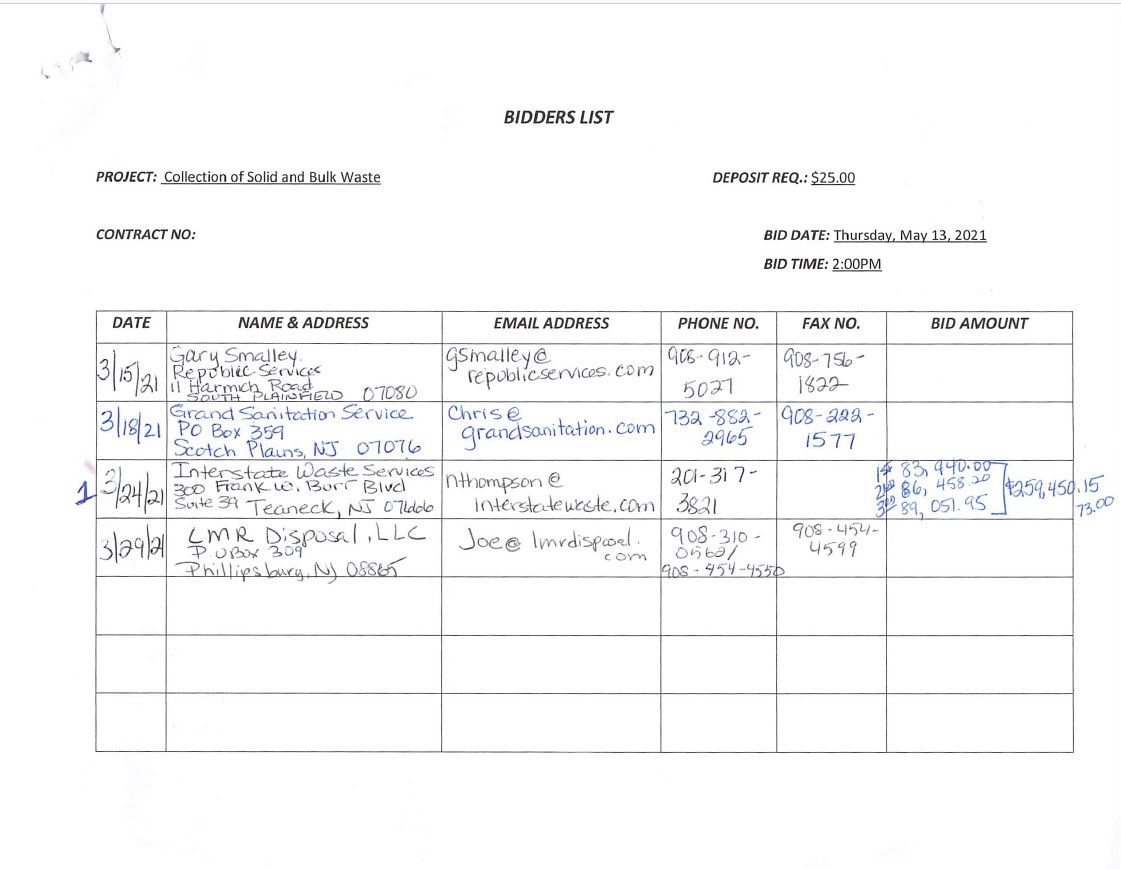 BIDDERS LIST
PROJECT: Collection of Solid and Bulk Waste
DEPOSIT REQ.: $25.00
CONTRACT NO:
BID DATE: Thursday, May 13, 2021
BID TIME: 2:00PM
DATE NAME & ADDRESS EMAIL ADDRESS PHONE NO. FAX NO. BID AMOUNT
3/15/21
Gary Smalley
Republic Services
11 Harmich Road
SOUTH PLAINFIELD 07080
gsmalley@
republicservices.com
908-912-
5027
908-756-
1822
3/18/21
Grand Sanitation Service
PO Box 359
Scotch Plains, NJ 07076
Chris@
grandsanitation.com
732-882-
2965
908-222-
1577
1
3/24/21
Interstate Waste Services
300 Frank W. Burr Blvd
Suite 39 Teaneck, NJ 07666
nthompson@
interstatewaste.com
201-317-
3821
1st 83,940.00
2nd 86,458.20
3rd 89,051.95
$259,450.15
73.00
3/29/21
LMR Disposal, LLC
P.O Box 309
Phillipsburg, NJ 08865
Joe@lmrdisposal.
com
908-310-
0562/
908-454-4550
908-454-
4599